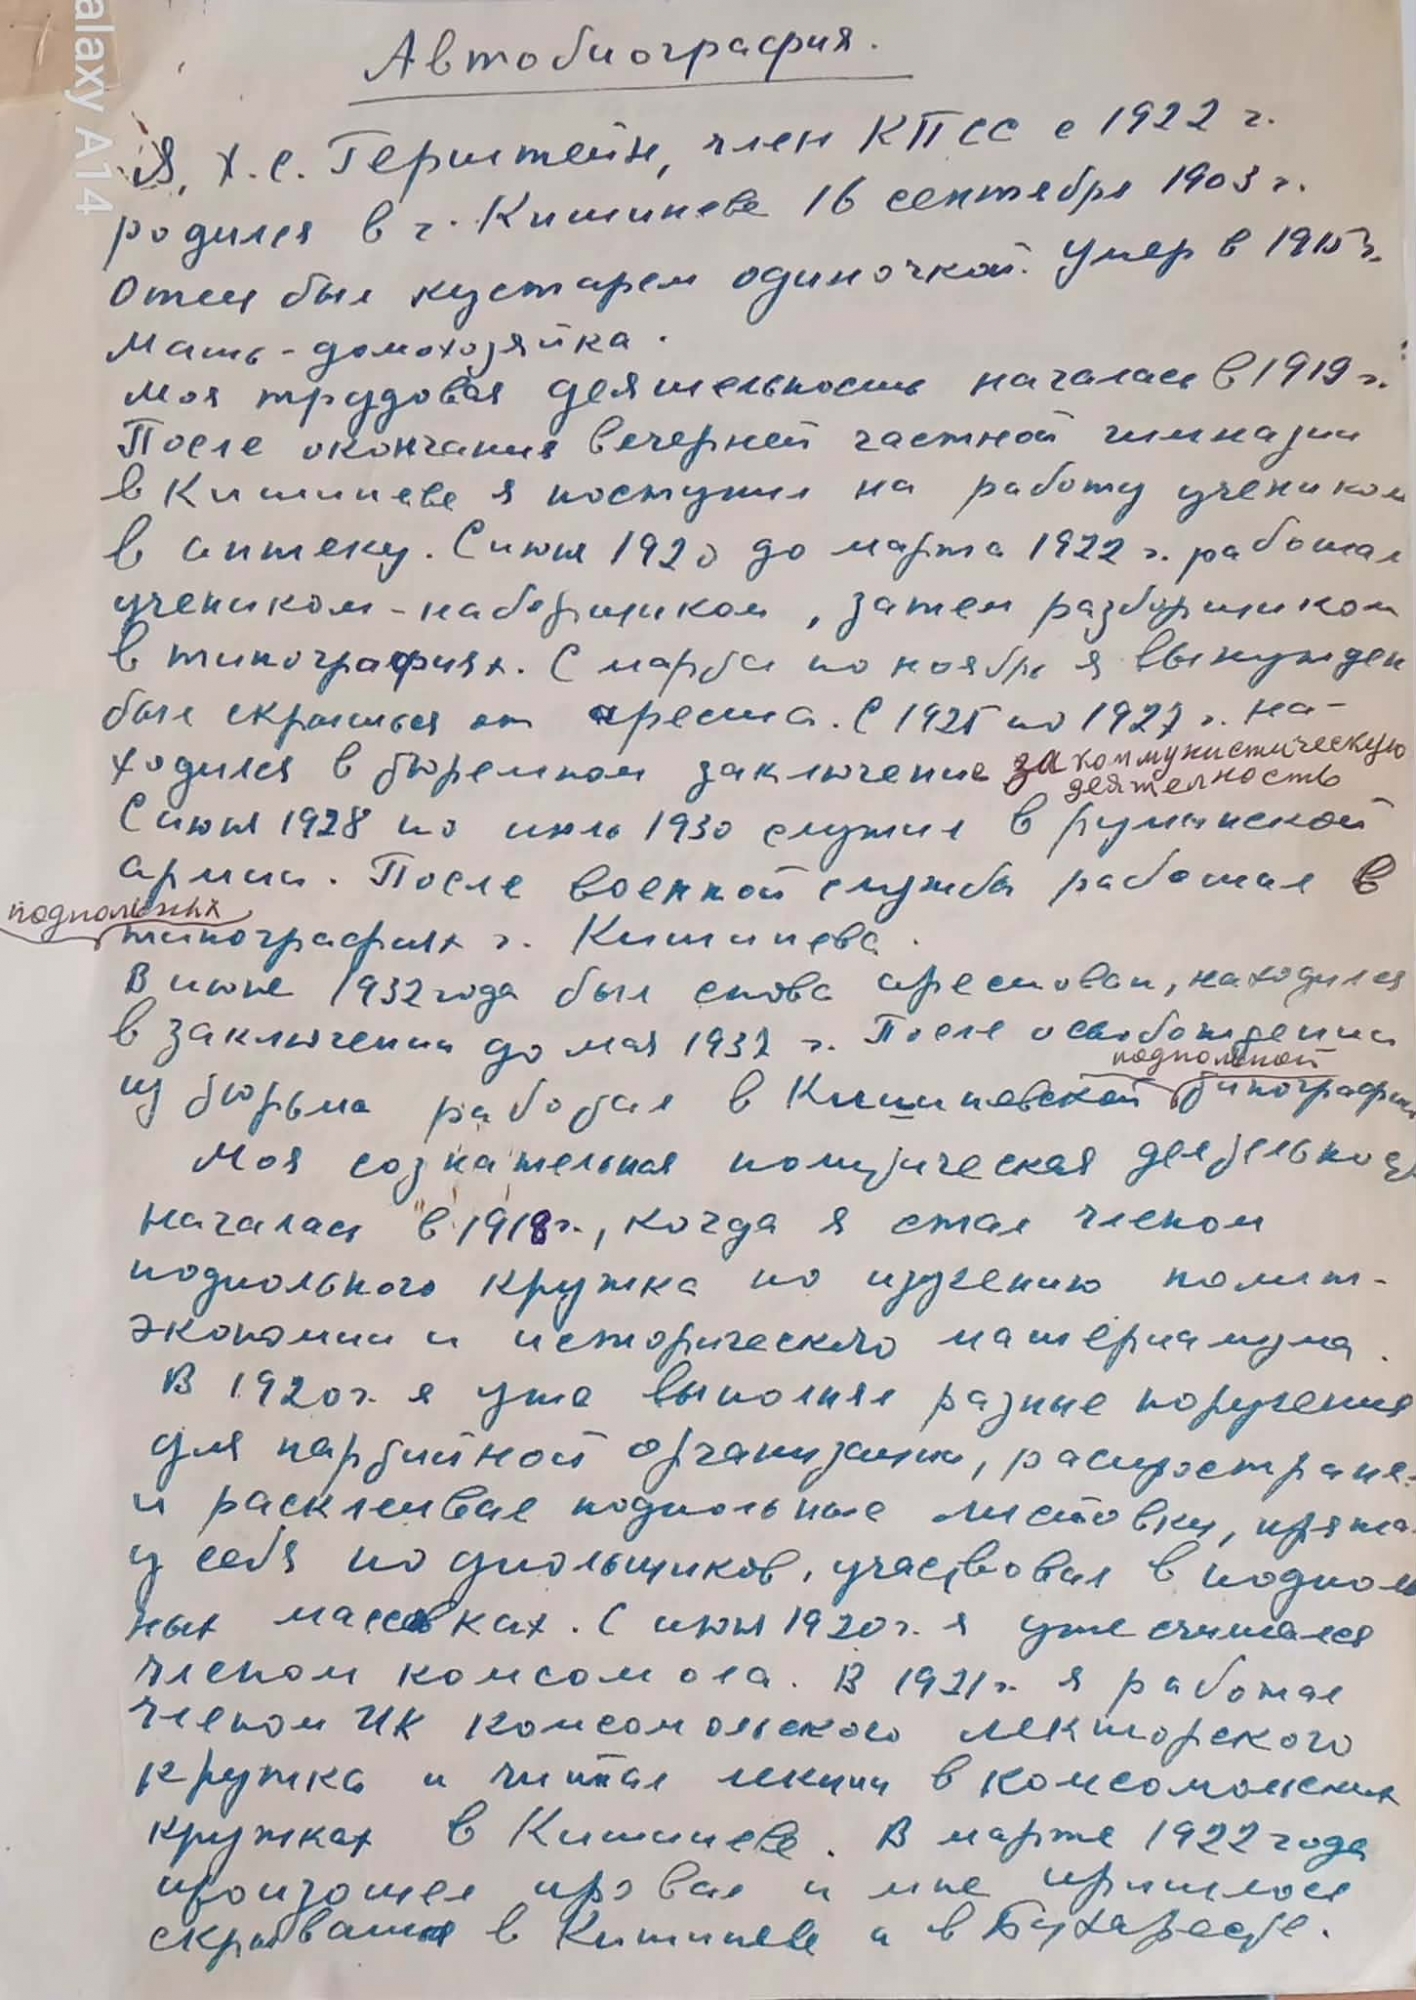 Автобиография.
Я, Х.С. Герштейн, член КПСС с 1922 г.
родился в г. Кишиневе 16 сентября 1903 г.
Отец был кустарем одиночкой. Умер в 1915 г.
Мать - домохозяйка.
Моя трудовая деятельность началась в 1919 г.
После окончания вечерней частной гимназии
в Кишиневе я поступил на работу учеником
в аптеку. С июня 1920 до марта 1922 г. работал
учеником-наборщиком, затем разборщиком
в типографиях. С марта по ноябрь я вынужден
был скрыться от ареста. С 1925 по 1927 г. на-
ходился в тюремном заключение за коммунистическую
деятелность
С июня 1928 по июль 1930 служил в румынской
армии. После военной службы работал в
подпольных
типографиях г. Кишинева.
В июне 1932 года был снова арестован, находился
в заключении до мая 1937 г. После освобождения
подпольной
из тюрьмы работал в Кишиневской типографии
Моя сознательная политическая деятельность
началась в 1918 г., когда я стал членом
подпольного кружка по изучению полит-
экономии и исторического материализма.
В 1920 г. я уже выполнял разные поручения
для партийной организации, распростране-
и расклеивал подпольные листовки, прята
у себя подпольщиков, участвовал в подполь
ных массовках. С июня 1920 г. я уже считался
членом комсомола. В 1921 г. я работал
членом ИК комсомольского лекторского
кружка и читал лекции в комсомольских
кружках в Кишиневе. В марте 1922 года
произошел провал и мне пришлось
скрываться в Кишиневе и в Бухаресте.
alaxy A14